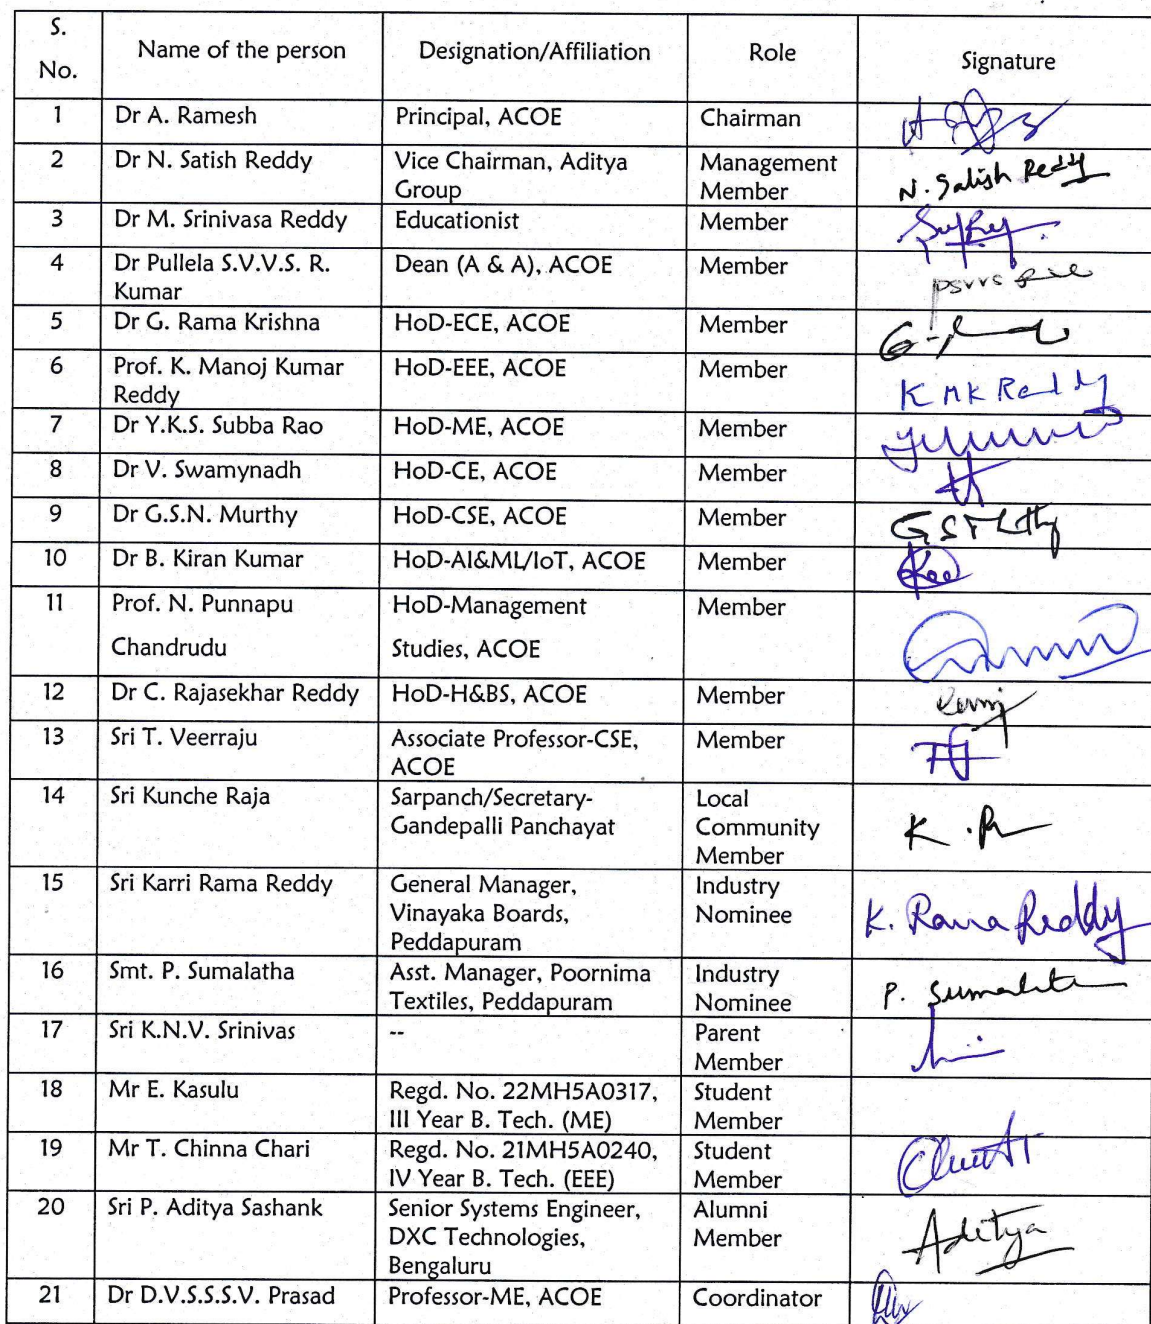 S.
No.
Name of the person
Designation/Affiliation
Role
Signature
1
Dr A. Ramesh
Principal, ACOE
Chairman
2
Dr N. Satish Reddy
Vice Chairman, Aditya
Group
Management
Member
N. Satish Reddy
3
Dr M. Srinivasa Reddy
Educationist
Member
4
Dr Pullela S.V.V.S. R.
Kumar
Dean (A & A), ACOE
Member
5
Dr G. Rama Krishna
HoD-ECE, ACOE
Member
6
Prof. K. Manoj Kumar
Reddy
HoD-EEE, ACOE
Member
K MK Reddy
7
Dr Y.K.S. Subba Rao
HoD-ME, ACOE
Member
8
Dr V. Swamynadh
HoD-CE, ACOE
Member
9
Dr G.S.N. Murthy
HoD-CSE, ACOE
Member
10
Dr B. Kiran Kumar
HoD-AI&ML/IoT, ACOE
Member
11
Prof. N. Punnapu
Chandrudu
HoD-Management
Studies, ACOE
Member
12
Dr C. Rajasekhar Reddy
HoD-H&BS, ACOE
Member
13
Sri T. Veerraju
Associate Professor-CSE,
ACOE
Member
14
Sri Kunche Raja
Sarpanch/Secretary-
Gandepalli Panchayat
Local
Community
Member
15
Sri Karri Rama Reddy
General Manager,
Vinayaka Boards,
Peddapuram
Industry
Nominee
K. Rama Reddy
16
Smt. P. Sumalatha
Asst. Manager, Poornima
Textiles, Peddapuram
Industry
Nominee
P. Sumalatha
17
Sri K.N.V. Srinivas
--
Parent
Member
18
Mr E. Kasulu
Regd. No. 22MH5A0317,
III Year B. Tech. (ME)
Student
Member
19
Mr T. Chinna Chari
Regd. No. 21MH5A0240,
IV Year B. Tech. (EEE)
Student
Member
20
Sri P. Aditya Sashank
Senior Systems Engineer,
DXC Technologies,
Bengaluru
Alumni
Member
Aditya
21
Dr D.V.S.S.S.V. Prasad
Professor-ME, ACOE
Coordinator